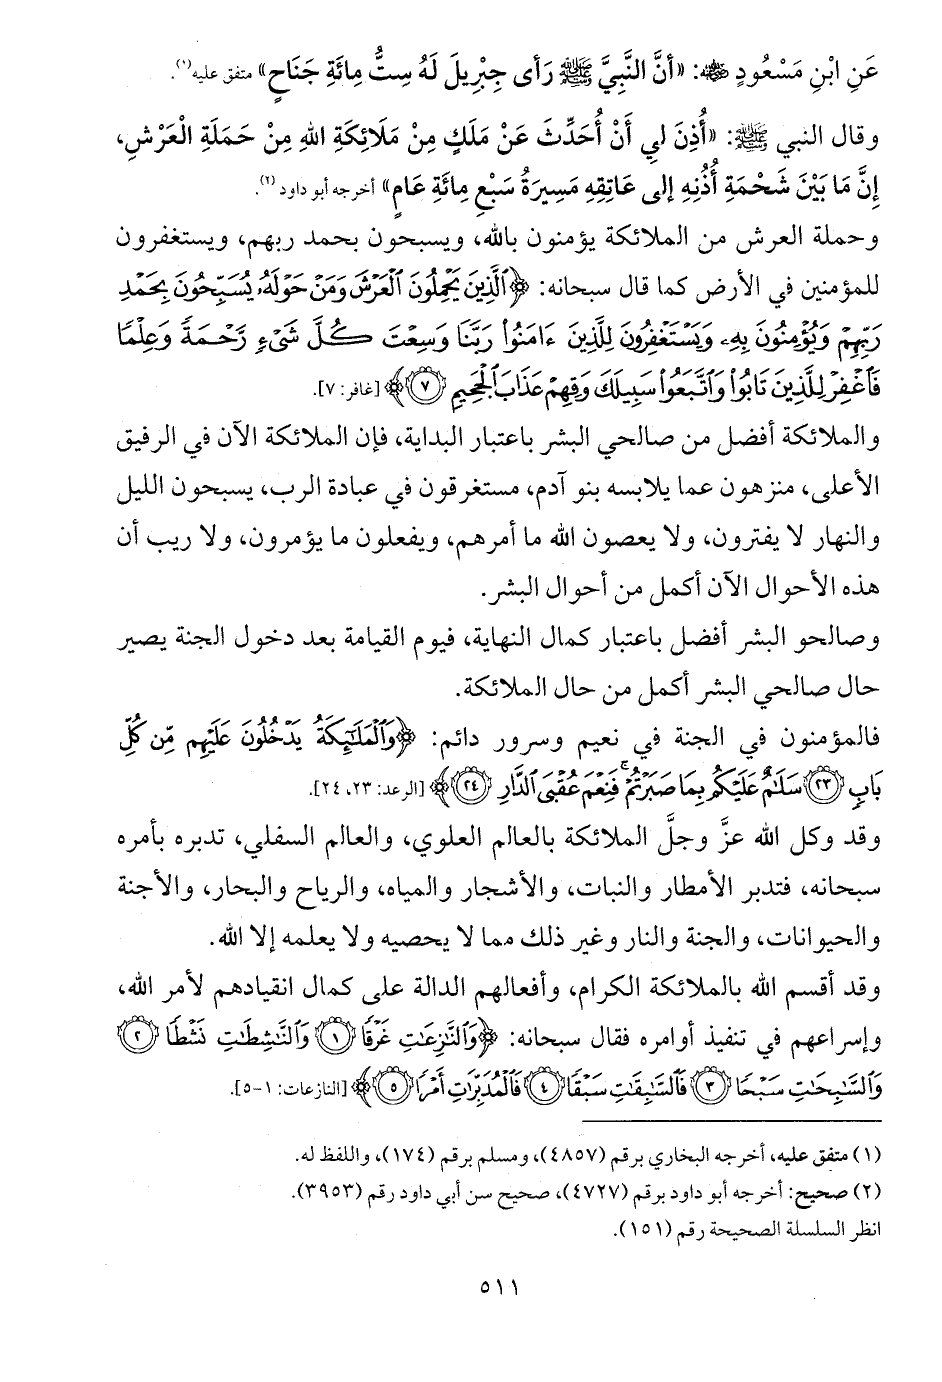 عَنِ ابْنِ مَسْعُودٍ رضي الله عنه: «أنَّ النَّبِيَّ ﷺ رَأى جِبْرِيلَ لَهُ سِتُّ مِائَةِ جَنَاحٍ» متفق عليه(١).
وقال النبي ﷺ: «أُذِنَ لِي أَنْ أُحَدِّثَ عَنْ مَلَكٍ مِنْ مَلَائِكَةِ اللهِ مِنْ حَمَلَةِ الْعَرْشِ،
إِنَّ مَا بَيْنَ شَحْمَةِ أُذُنِهِ إلى عَاتِقِهِ مَسِيرَةُ سَبْعِ مِائَةِ عَامٍ» أخرجه أبو داود (٢).
وحملة العرش من الملائكة يؤمنون بالله، ويسبحون بحمد ربهم، ويستغفرون
للمؤمنين في الأرض كما قال سبحانه: ﴿ٱلَّذِينَ يَحْمِلُونَ ٱلْعَرْشَ وَمَنْ حَوْلَهُۥ يُسَبِّحُونَ بِحَمْدِ
رَبِّهِمْ وَيُؤْمِنُونَ بِهِۦ وَيَسْتَغْفِرُونَ لِلَّذِينَ ءَامَنُوا۟ رَبَّنَا وَسِعْتَ كُلَّ شَىْءٍ رَّحْمَةً وَعِلْمًا
فَٱغْفِرْ لِلَّذِينَ تَابُوا۟ وَٱتَّبَعُوا۟ سَبِيلَكَ وَقِهِمْ عَذَابَ ٱلْجَحِيمِ ٧﴾ [غافر: ٧].
والملائكة أفضل من صالحي البشر باعتبار البداية، فإن الملائكة الآن في الرفيق
الأعلى، منزهون عما يلابسه بنو آدم، مستغرقون في عبادة الرب، يسبحون الليل
والنهار لا يفترون، ولا يعصون الله ما أمرهم، ويفعلون ما يؤمرون، ولا ريب أن
هذه الأحوال الآن أكمل من أحوال البشر.
وصالحو البشر أفضل باعتبار كمال النهاية، فيوم القيامة بعد دخول الجنة يصير
حال صالحي البشر أكمل من حال الملائكة.
فالمؤمنون في الجنة في نعيم وسرور دائم: ﴿وَٱلْمَلَـٰٓئِكَةُ يَدْخُلُونَ عَلَيْهِم مِّن كُلِّ
بَابٍ ٢٣ سَلَـٰمٌ عَلَيْكُم بِمَا صَبَرْتُمْ ۚ فَنِعْمَ عُقْبَى ٱلدَّارِ ٢٤﴾ [الرعد: ٢٣، ٢٤].
وقد وكل الله عزَّ وجلَّ الملائكة بالعالم العلوي، والعالم السفلي، تدبره بأمره
سبحانه، فتدبر الأمطار والنبات، والأشجار والمياه، والرياح والبحار، والأجنة
والحيوانات، والجنة والنار وغير ذلك مما لا يحصيه ولا يعلمه إلا الله.
وقد أقسم الله بالملائكة الكرام، وأفعالهم الدالة على كمال انقيادهم لأمر الله،
وإسراعهم في تنفيذ أوامره فقال سبحانه: ﴿وَٱلنَّـٰزِعَـٰتِ غَرْقًا ١ وَٱلنَّـٰشِطَـٰتِ نَشْطًا ٢
وَٱلسَّـٰبِحَـٰتِ سَبْحًا ٣ فَٱلسَّـٰبِقَـٰتِ سَبْقًا ٤ فَٱلْمُدَبِّرَٰتِ أَمْرًا ٥﴾ [النازعات: ١-٥].
(١) متفق عليه، أخرجه البخاري برقم (٤٨٥٧)، ومسلم برقم (١٧٤)، واللفظ له.
(٢) صحيح: أخرجه أبو داود برقم (٤٧٢٧)، صحيح سن أبي داود رقم (٣٩٥٣).
انظر السلسلة الصحيحة رقم (١٥١).
٥١١